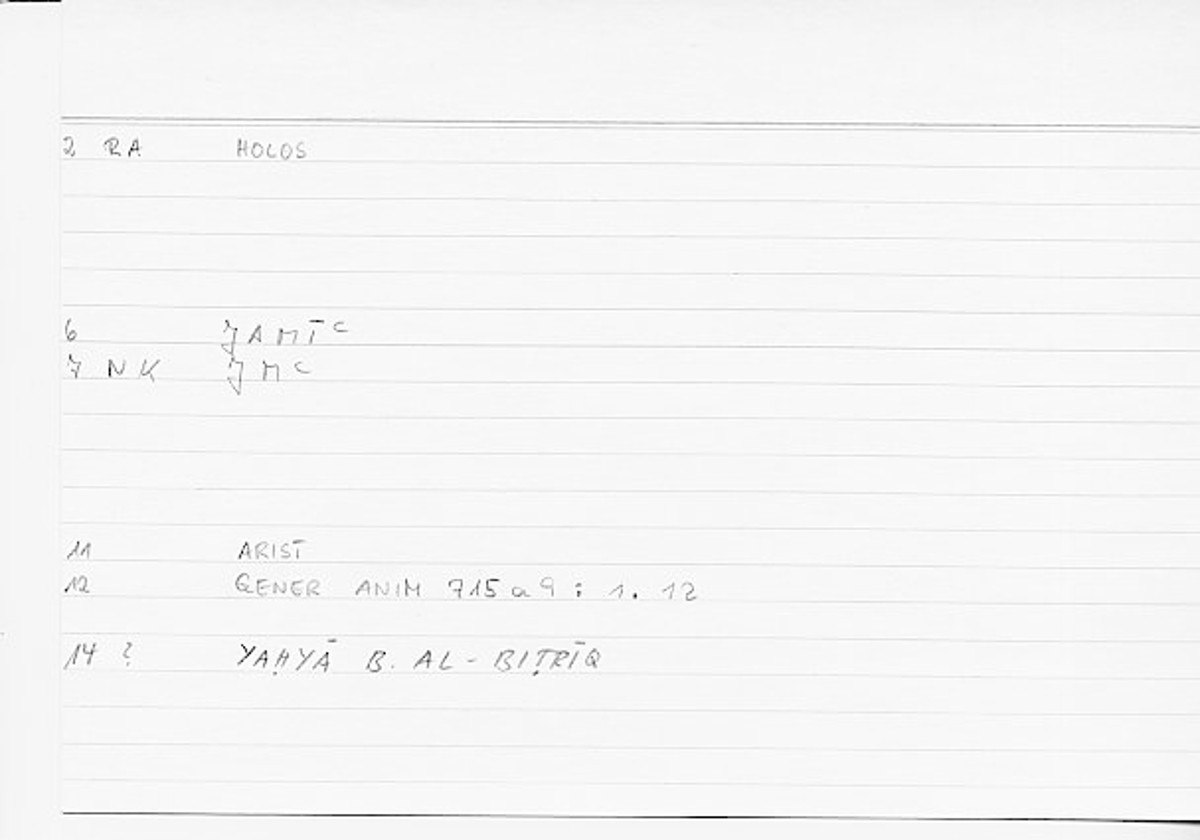 2 RA HOLOS
6 JAMĪc
7 NK JMc
11 ARIST
12 GENER ANIM 715a9 : 1.12
14 ? YAḤYĀ B. AL-BIṬRĪQ